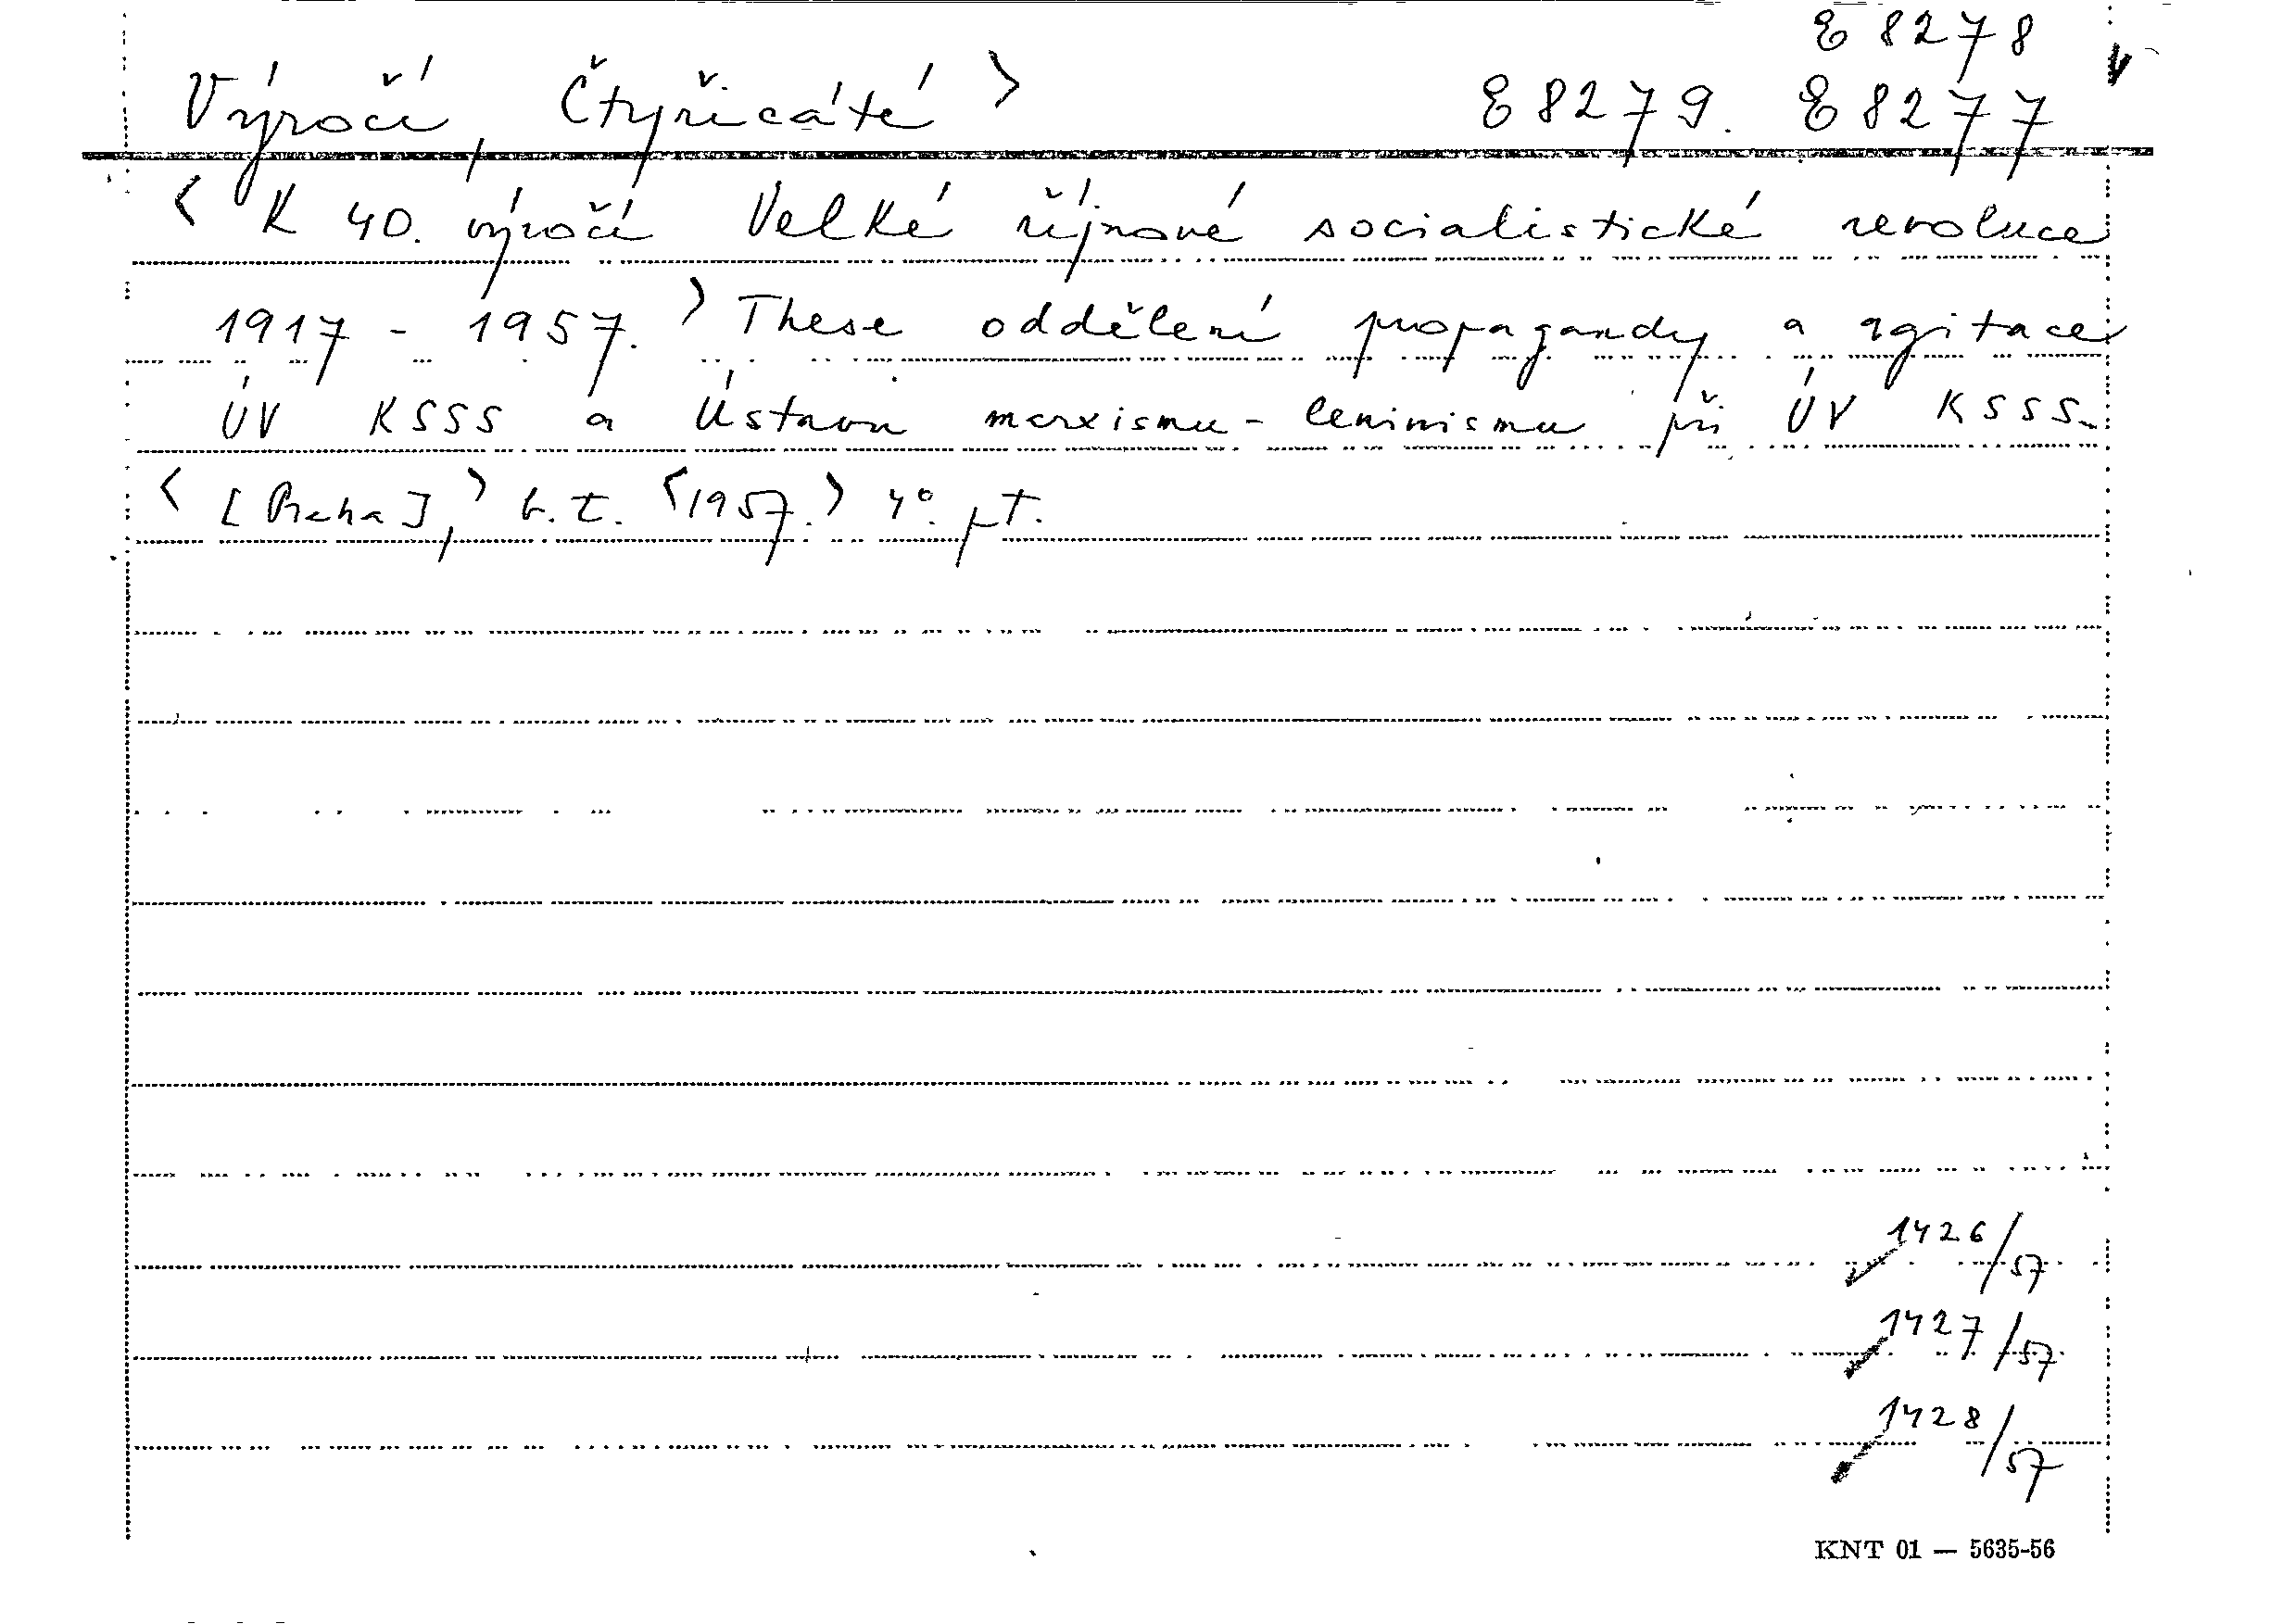 E 8278
Výročí, Čtyřicáté > E 8279. E 8277
< K 40. výročí Velké říjnové socialistické revoluce
1917 - 1957. > These oddělení propagandy a agitace
ÚV KSSS a Ústavu marxismu-leninismu při ÚV KSSS.
< [Praha], > b. t. <1957.> 4°. pT.
1426/57
1427/57
1428/57
KNT 01 — 5635-56